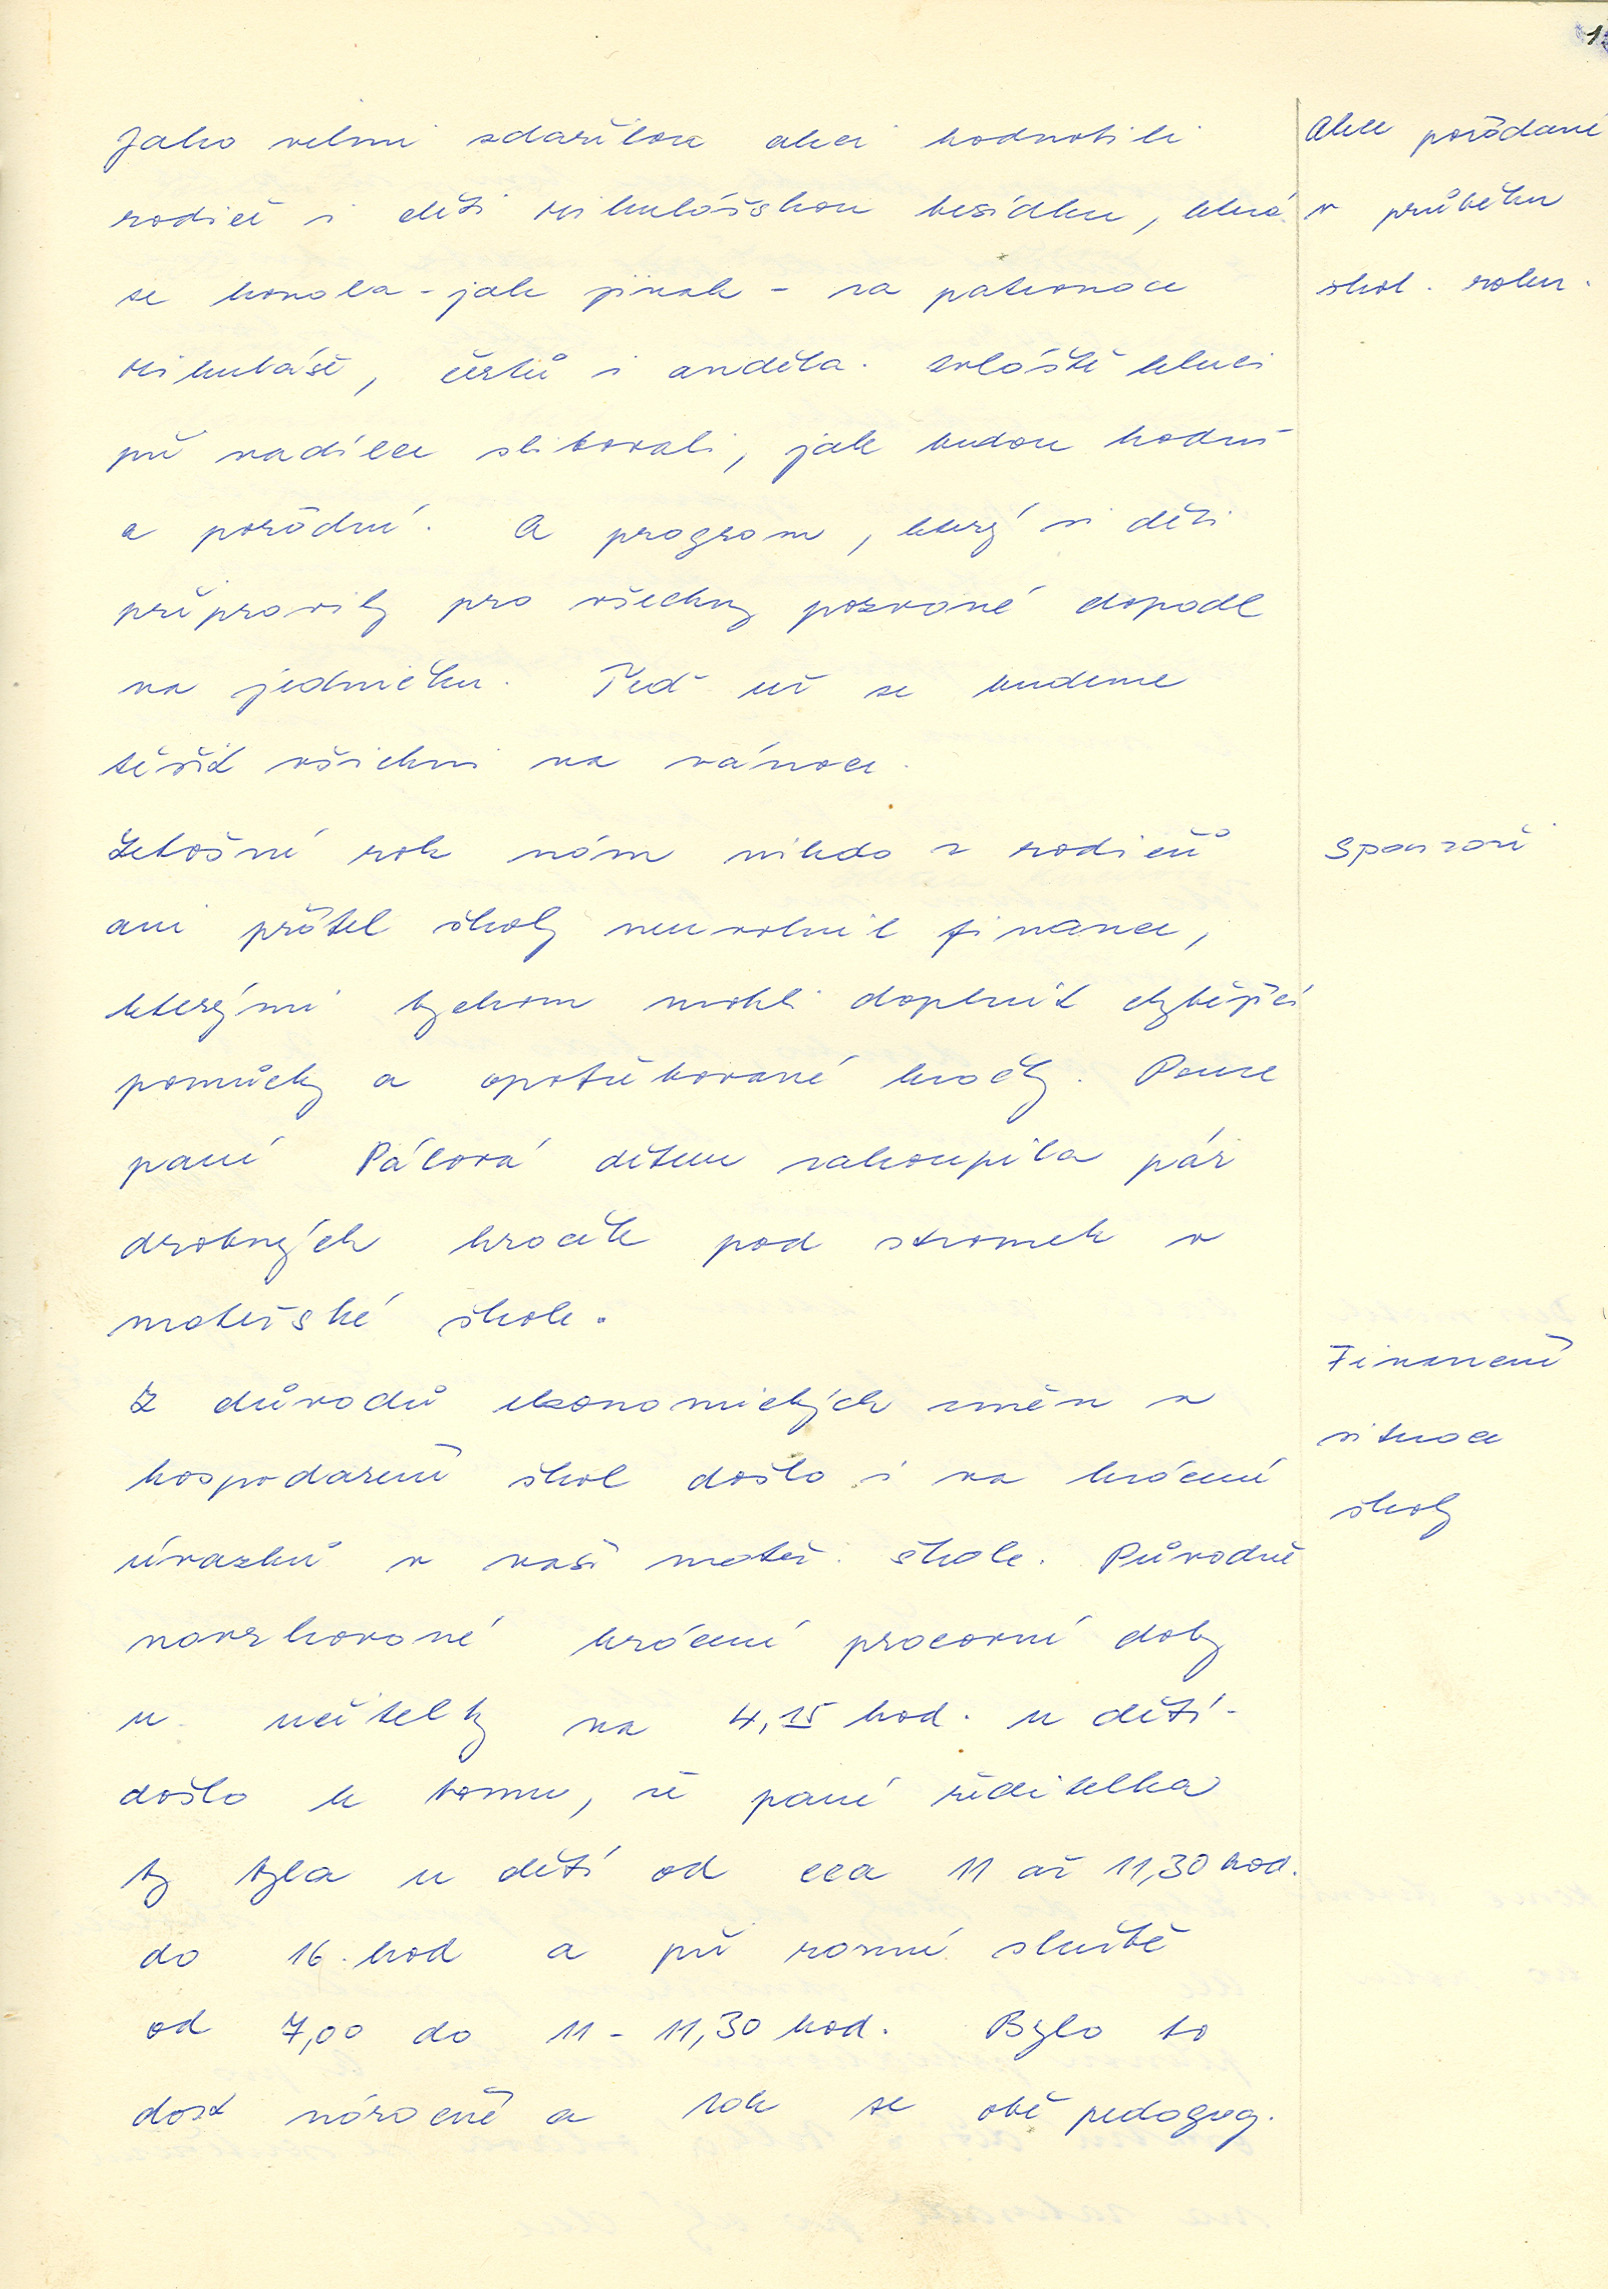 Jako velmi zdařilou akci hodnotili
rodiče i děti Mikulášskou besídku, která
se konala - jak jinak - za patronace
Mikuláše, čertů i anděla. Zvláště kluci
při nadílce slibovali, jak budou hodní
a pořádní. A program, který si děti
připravily pro všechny pozvané dopadl
na jedničku. Teď už se budeme
těšit všichni na vánoce.
Letošní rok nám nikdo z rodičů
ani přátel školy neuvolnil finance,
kterými bychom mohli doplnit chybějící
pomůcky a opotřebované hračky. Pouze
paní Pálová dětem zakoupila pár
drobných hraček pod stromek v
mateřské škole.
Z důvodů ekonomických změn v
hospodaření škol došlo i na krácení
úvazků v naší mateř. škole. Původně
navrhované krácení pracovní doby
u učitelky na 4,15 hod. u dětí -
došlo k tomu, že paní ředitelka
by byla u dětí od cca 11 až 11,30 hod.
do 16. hod a při ranní službě
od 7,00 do 11 - 11,30 hod. Bylo to
dost náročné a tak se obě pedagog.
Akce pořádané
v průběhu
škol. roku.
Sponzoři
Finanční
situace
školy